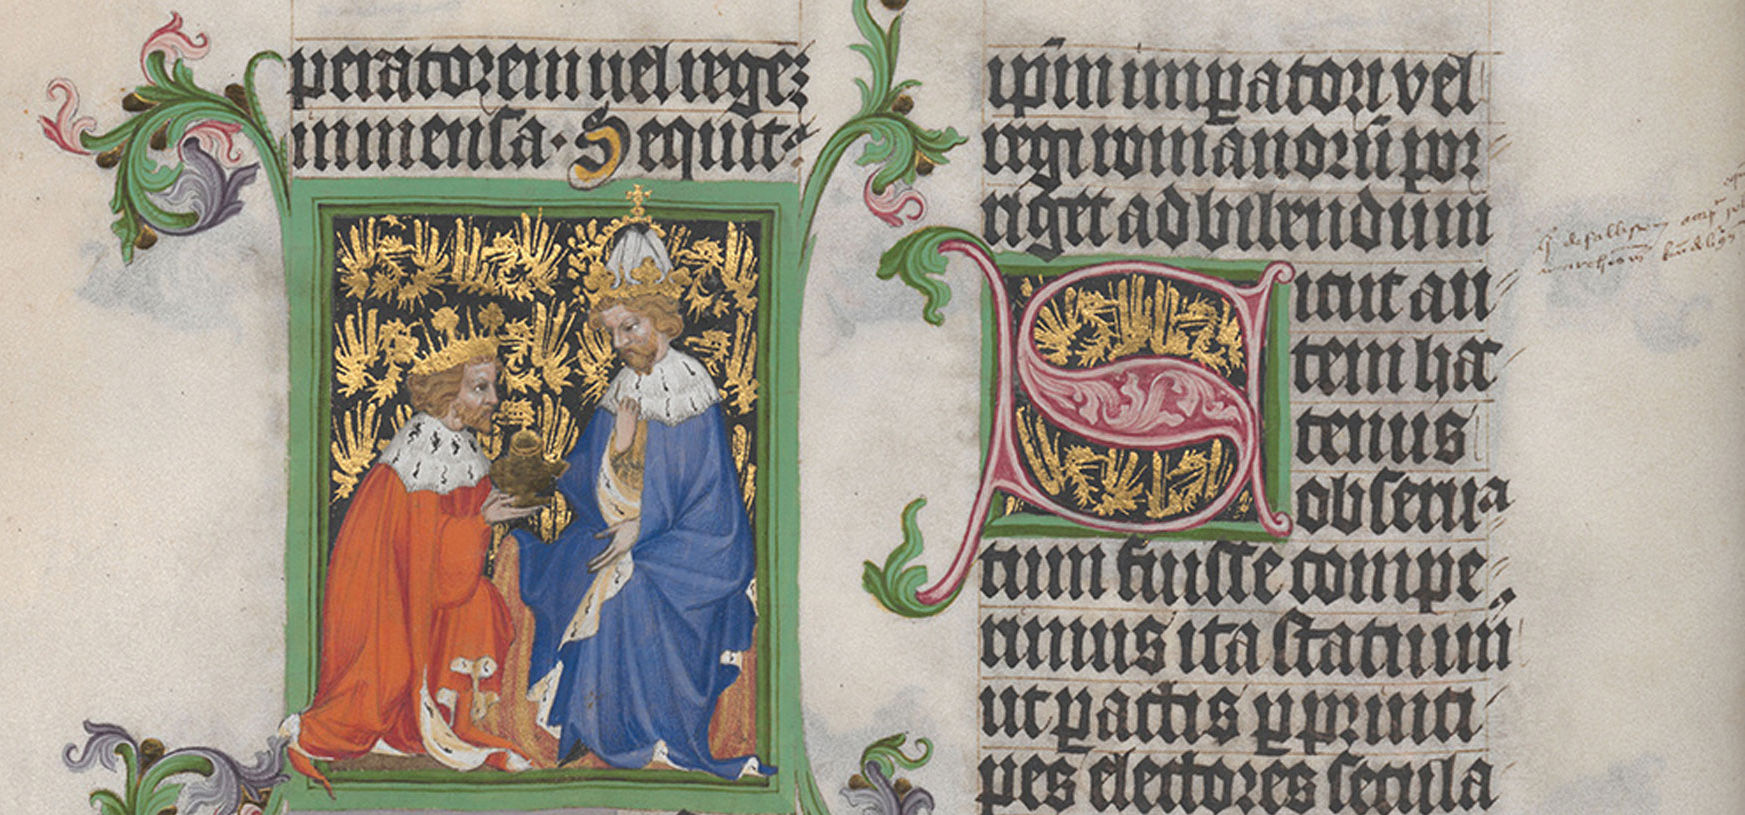 peratorem uel regeꝫ
immensa · Sequit᷑
ip̄m imꝑatori vel
regi romanorū por
riget ad bibendum
Sicut au
tem hac
tenus
obserua
tum fuisse compe
rimus ita statuim᷒
ut pactis ꝑ princi
pes electores secula